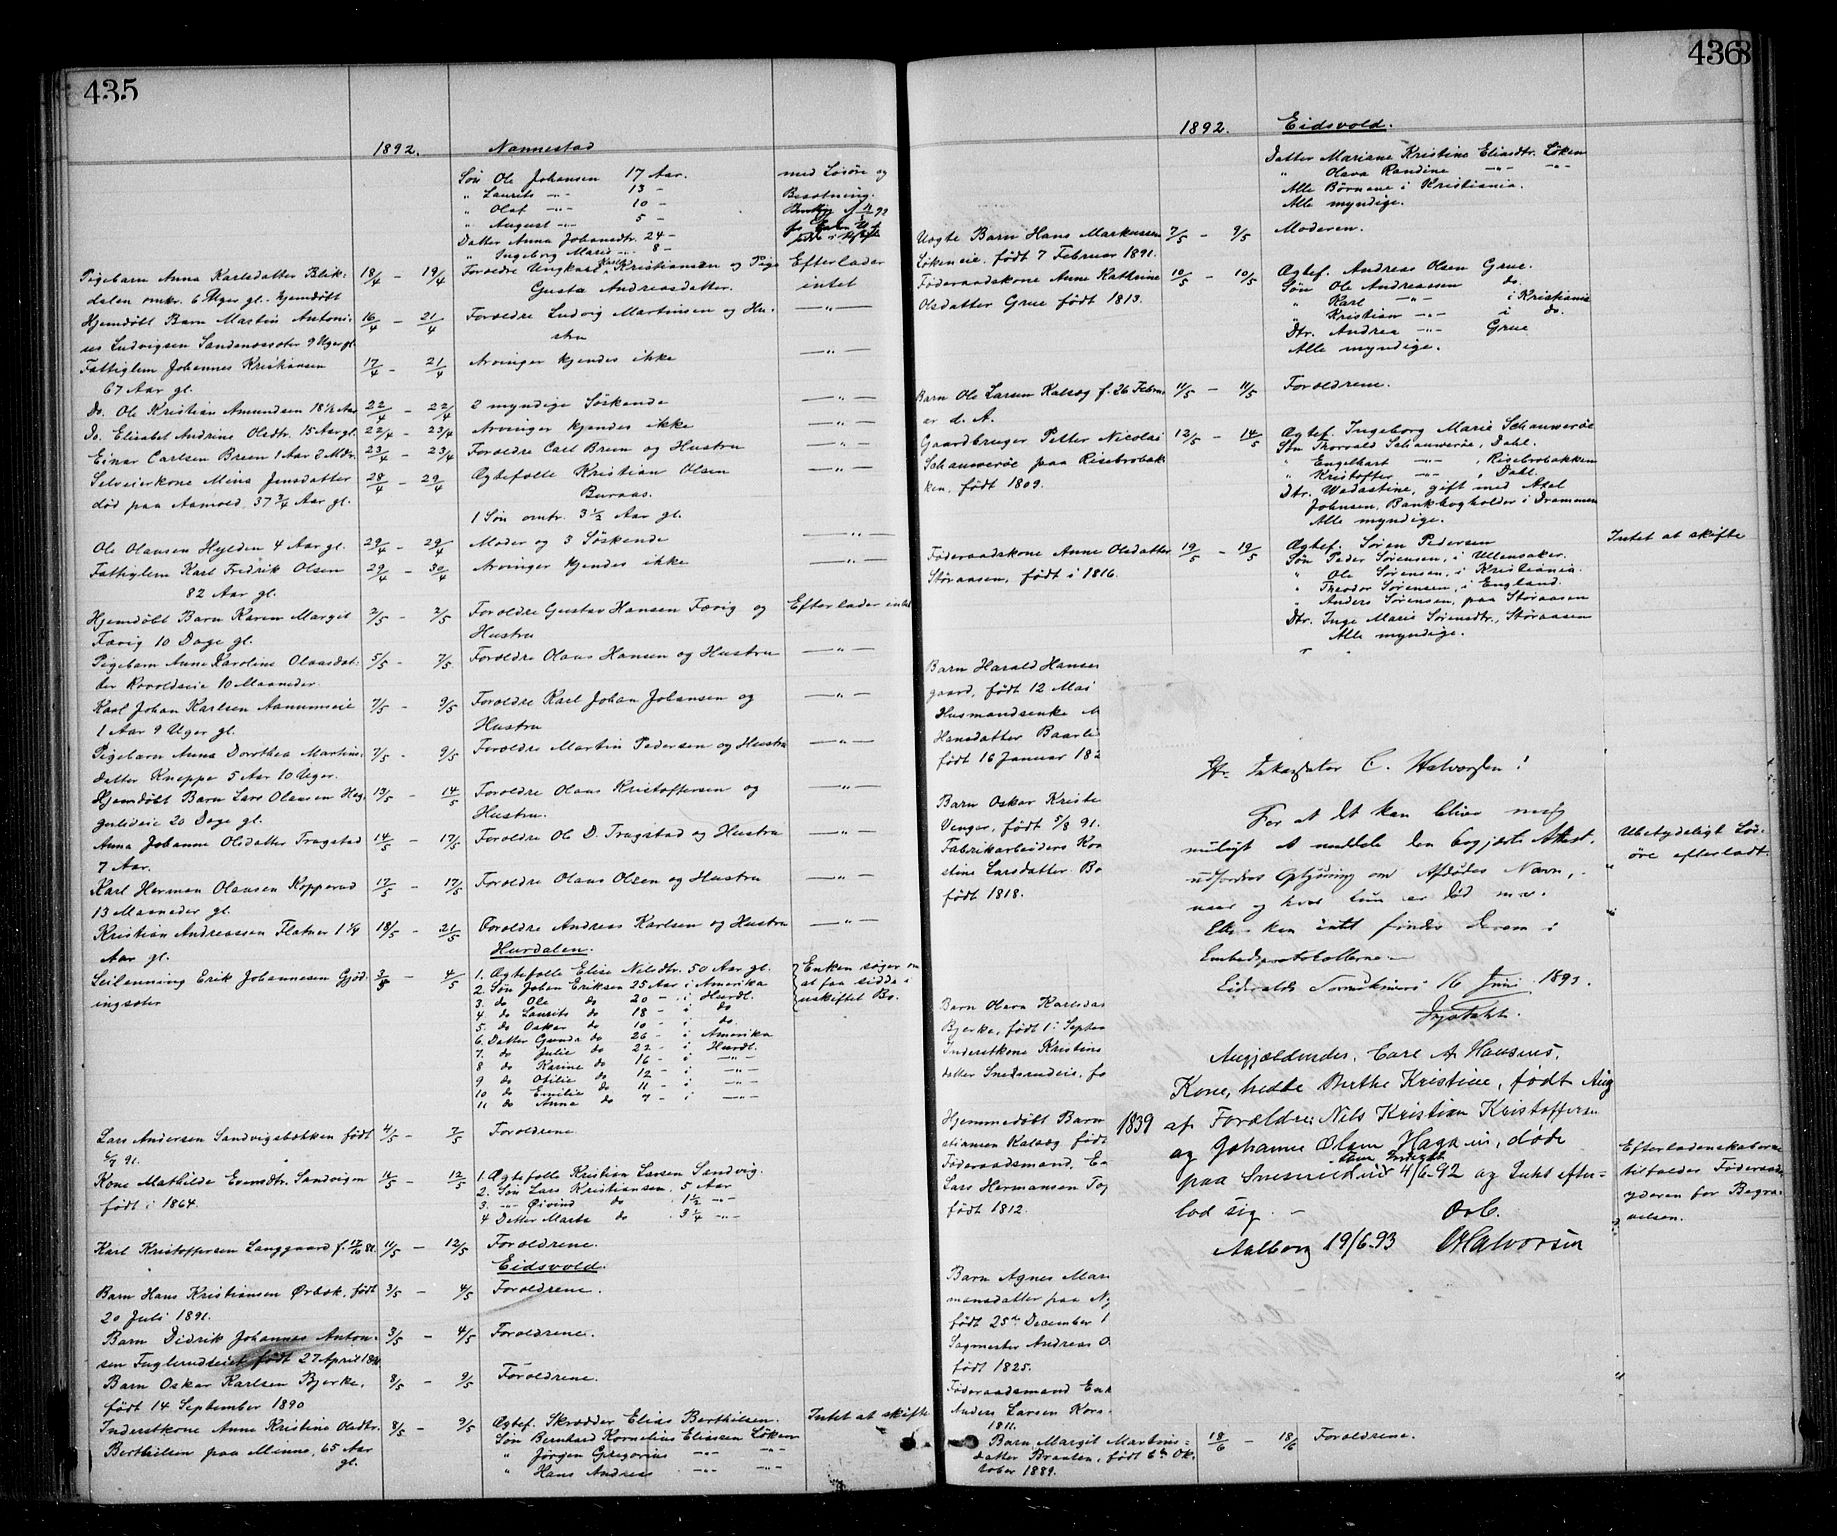 435
1892. Nannestad
Søn Ole Johansen 17 Aar. med Løsøre og
" Laurits -"- 13 - Besætning.
" Olaf -"- 10 -
" August -"- 5 -
Datter Anna Johansdtr. 24 -
" Ingeborg Marie -"- 8 -
Pigebarn Anna Karlsdatter Blik- 18/4 - 19/4 Forældre Ungkarl Karl Kristiansen og Pige Efterlader
dalen omtr. 6 Uger gl. hjemdøbt Gusta Andreasdatter. intet
Hjemdøbt Barn Martin Antoni- 16/4 - 21/4 Forældre Ludvig Martinsen og Hu- —"—
us Ludvigsen Sandnessæter 9 Uger gl. stru
Fattiglem Johannes Kristiansen 17/4 - 21/4 Arvinger kjendes ikke —"—
67 Aar gl.
Do. Ole Kristian Amundsen 18 1/2 Aar 22/4 - 22/4 2 myndige Søskende —"—
Do. Elisabet Andrine Olsdtr. 15 Aar gl. 22/4 - 23/4 Arvinger kjendes ikke —"—
Einar Carlsen Breen 1 Aar 2 Mdr. 23/4 - 23/4 Forældre Carl Breen og Hustru —"—
Selveierkone Mina Jensdatter 28/4 - 29/4 Ægtefælle Kristian Olsen —"—
død paa Aamold, 37 3/4 Aar gl. Buraas.
1 Søn omtr. 3 1/2 Aar gl.
Ole Olausen Hylden 4 Aar gl. 29/4 - 29/4 Moder og 3 Søskende —"—
Fattiglem Karl Fredrik Olsen 29/4 - 30/4 Arvinger kjendes ikke —"—
82 Aar gl.
Hjemdøbt Barn Karen Margit 2/5 - 2/5 Forældre Gustav Hansen Færig og Efterlader intet
Færig 10 Dage gl. Hustru
Pigebarn Anne Karoline Olausdat- 5/5 - 7/5 Forældre Olaus Hansen og Hustru —"—
ter 10 Maaneder.
Karl Johan Karlsen 7/5 - 9/5 Forældre Karl Johan Johansen og —"—
1 Aar 9 Uger gl. Hustru
Pigebarn Anna Dorthea Martins- 7/5 - 9/5 Forældre Martin Pedersen og Hustru —"—
datter Kneppe 5 Aar 10 Uger.
Hjemdøbt Barn Lars Olausen Hæg- 13/5 - 14/5 Forældre Olaus Kristoffersen og —"—
gerlieie 20 Dage gl. Hustru.
Anna Johanne Olsdatter Trugstad 14/5 - 17/5 Forældre Ole D. Trugstad og Hustru —"—
7 Aar.
Karl Herman Olausen Kopperud 17/5 - 17/5 Forældre Olaus Olsen og Hustru —"—
13 Maaneder gl.
Kristian Andreassen Flatner 1 1/4 18/5 - 21/5 Forældre Andreas Karlsen og Hustru —"—
Aar gl. Hurdalen.
Leilænding Erik Johannesen Gjød- 3/5 - 4/5 1. Ægtefælle Elise Nilsdtr. 50 Aar gl. Enken søger om
ingsæter 2. Søn Johan Eriksen 25 Aar i Amerika at faa sidde i
3. do Ole do 20 - i Hurdl. uskiftet Bo.
4. do Laurits do 18 - i do
5. do Oskar do 10 - i do.
6. Datter Gunda do 26 - i Amerika
7. do Julie do 22 - i Hurdl.
8 do Karine do 16 - i -"-
9 do Otilie do 12 - i -"-
10 do Emilie do 11 - i -"-
11 do Anna do 7 - i -"-
Lars Andersen Sandvigsbækken født 4/5 - 7/5 Forældrene
91.
Kone Mathilde Evensdtr. Sandvigen 11/5 - 12/5 1. Ægtefælle Kristian Larsen Sandvig.
født i 1864. 2. Søn Lars Kristiansen, 5 Aar
3. -"- Øivind do 1 1/2 -"-
4 Datter Marta do 3 1/4 -"-
Karl Kristoffersen Langgaard f. 11/5 - 12/5 Forældrene.
Eidsvold.
Barn Hans Kristiansen Ørbæk, født 3/5 - 4/5 Forældrene.
20 Juli 1891.
Barn Didrik Johannes Anton- 3/5 - 4/5 Forældrene.
sen Fuglerudseiet født 27 April
Barn Oskar Karlsen Bjerke, 8/5 - 9/5 Forældrene.
født 14 September 1890
Inderstkone Anne Kristine Olsdtr. 8/5 - 9/5 Ægtef. Skrædder Elias Berthelsen. Intet at skifte
Berthelsen paa Minne, 65 Aar Søn Bernhard Kornelius Eliassen Løken
gl. " Jørgen Gregorius -"- -"-
" Hans Andreas -"- -"-
436
1892. Eidsvold.
Datter Mariane Kristine Eliasdtr. Løken
" Olava Randine -"- -"-
Alle Børnene i Kristiania.
Alle myndige.
Uægte Barn Hans Markussen 7/5 - 9/5 Moderen.
Løkeneie. født 7 Februar 1891.
Føderaadskone Anne Kathrine 10/5 - 10/5 Ægtef. Andreas Olsen Grue.
Olsdatter Grue født 1813. Søn Ole Andreassen do.
" Karl -"- i Kristiania
" Kristian -"- i do.
Dtr. Andrea -"- Grue
Alle myndige.
Barn Ole Larsen Kalsæg f. 26 Febru- 11/5 - 11/5 Forældrene.
ar d. A.
Gaardbruger Petter Nicolai 12/5 - 14/5 Ægtef. Ingeborg Marie Schauwerøe
Schauwerøe paa Risebrobak- Søn Thorvald Schauwerøe, Dahl.
ken, født 1809. " Engelhart -"- , Risebrobakken
" Kristoffer -"- , Dahl.
Dtr. Wadastine, gift med Axel
Johnsen, Bankbogholder i Drammen
Alle myndige.
Føderaadskone Anne Olsdatter 19/5 - 19/5 Ægtef. Søren Pedersen Intet at skifte
Støraasen, født i 1816. Søn Peder Sørensen, i Ullensaker.
" Ole Sørensen, i Kristiania.
" Theodor Sørensen, i England.
" Anders Sørensen, paa Støraasen
Dtr. Inge Marie Sørensdtr, Støraasen
Alle myndige.
Barn Harald Hanse
gaard, født 12 Mai
Husmandsenke M
Hansdatter Baarli
født 16 Januar 182
Barn Oskar Kriste
Venger, født 5/8 91.
Fabrikarbeiders Kon
stine Larsdatter Bo
født 1818.
Barn Olava Karlsda
Bjerke, født 1. Septem
Inderstkone Kristine
datter Snedsrudeie, fø
Hjemmedøbt Barn
stiansen Kalsæg født
Føderaadsmand, En
Lars Hermansen
født 1812.
Barn Agnes Mar
mansdatter paa N
født 25de December 1
Sagmester Andreas O
født 1825.
Føderaadsmand Enk
Anders Larsen Kors
1811.
Barn Margit Martins- 18/6 - 18/6 Forældrene.
datter Braaten, født 6te Ok-
tober 1889.
Hr. C. Halvorsen!
For at det kan blive mig
muligt at meddele den begjærte Attest,
udfordres Oplysning om Afdødes Navn,
naar og hvor hun er død m.v.
kan intet findes derom i
Embedsprotokollerne.
Eidsvolds 16 Juni 1893.
Angjældende, Carl A. Hansens,
Kone, hedte Berthe Kristine, født Aug
1839 af Forældre: Nils Kristian Kristoffersen
og Johanne Olsen Hagaen, døde
paa 4/6-92 og intet efter-
lod sig. - Ærb.
Aalborg 19/6-93 CHalvorsen
Ubetydeligt Løs-
øre efterladt.
Efterladenskaberne
tilfaldes Føderaads-
yderen for Begra-
velsen.